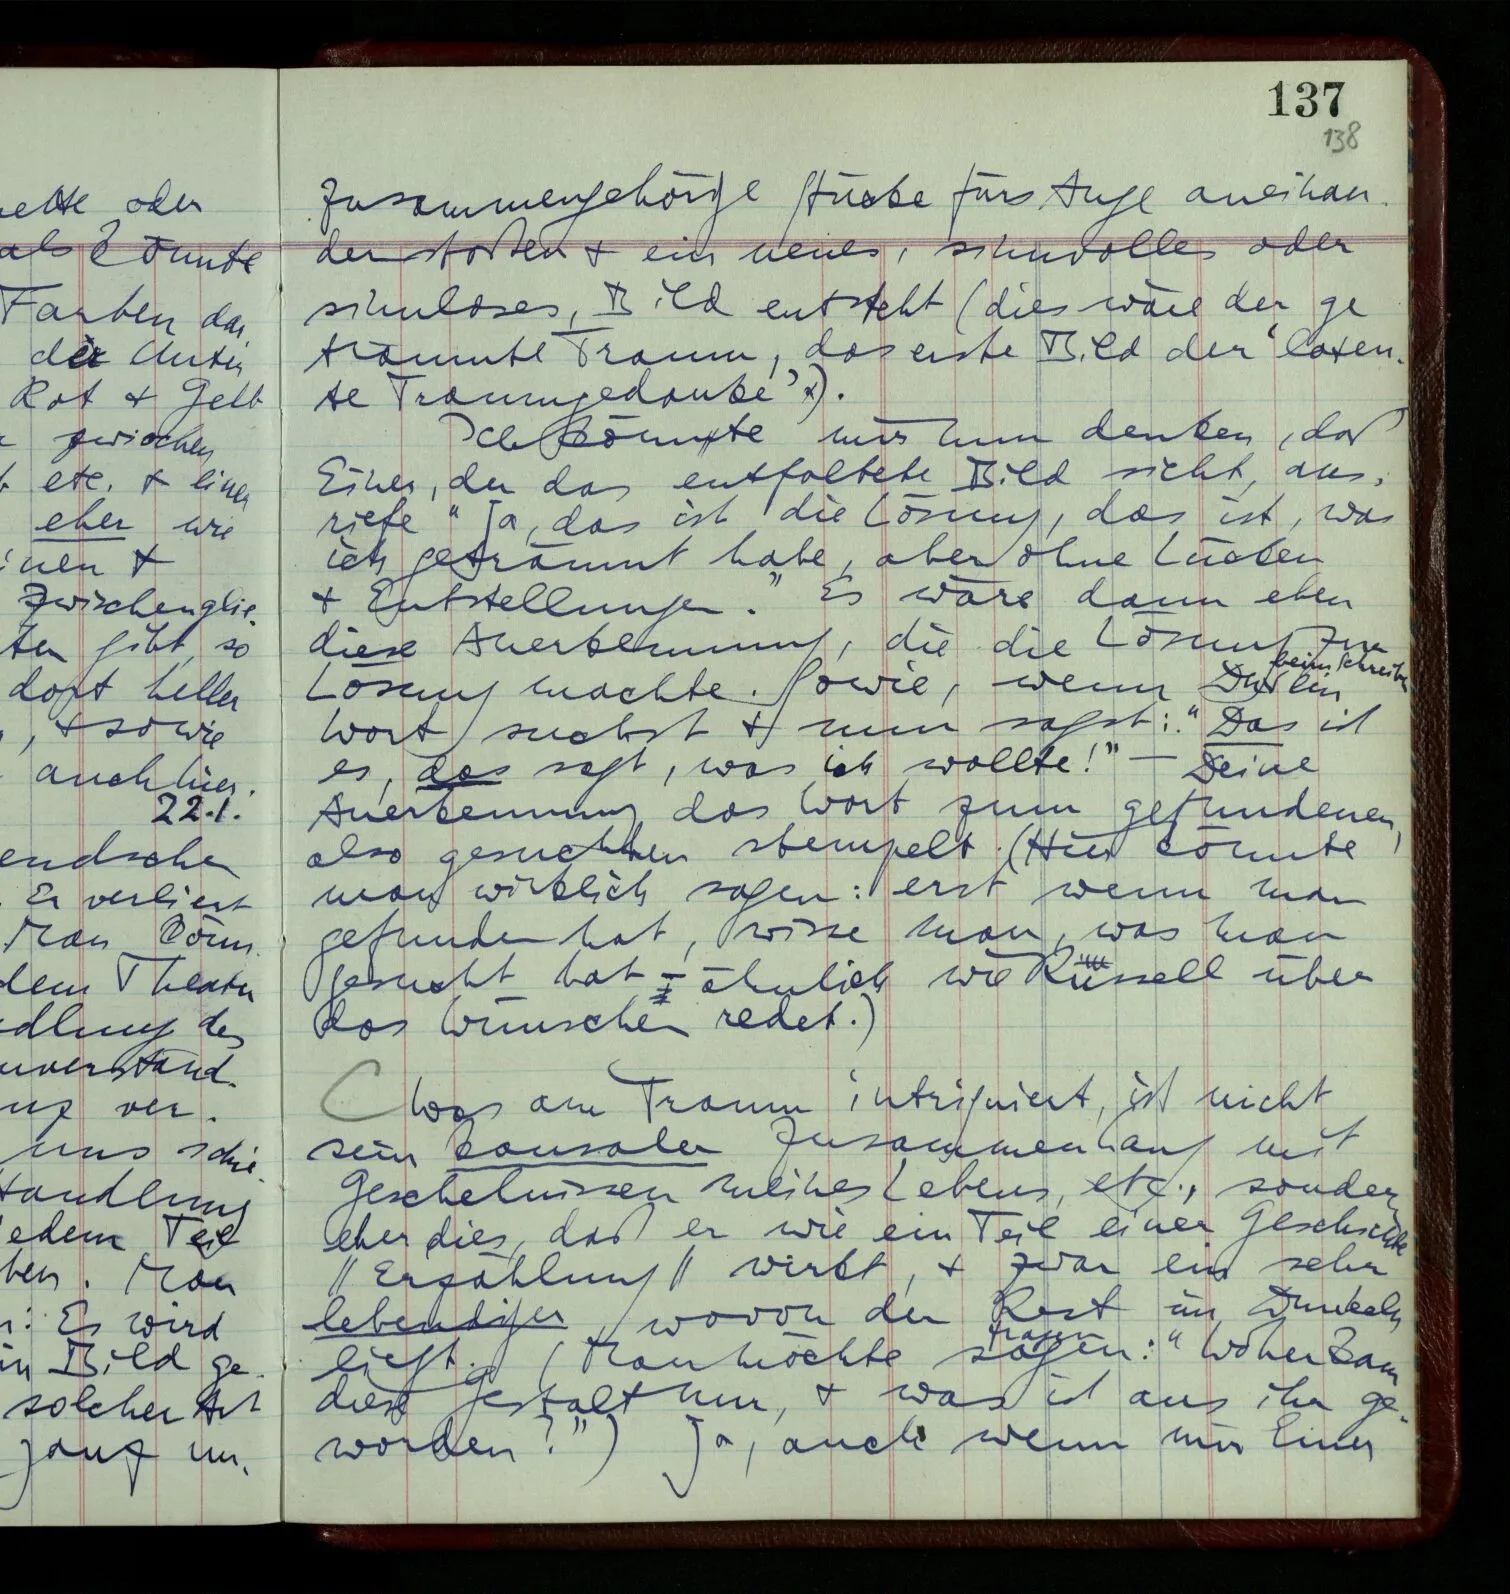 137
138
oder
als könnte
Farben das
die Unter
Rot & Gelb
zwischen
etc. & einer
eher wie
&
Zwischenglie-
gibt, so
dort heller
, & sowie
auch hier.
22.1.
Er verliert
Man könn-
dem Theater
ver-
uns
Handlung
jedem Teil
Man
: Es wird
Bild ge-
solcher Art
ganz un-
zusammengehörige Stücke fürs Auge aneinan-
der stoßen & ein neues, sinnvolles oder
sinnloses, Bild entsteht (dies wäre der ge
träumte Traum, das erste Bild der ‘laten-
te Traumgedanke’).
Ich könnte mir nun denken, daß
Einer, der das entfaltete Bild sieht, aus-
riefe “Ja, das ist die Lösung, das ist, was
ich geträumt habe, aber ohne Lücken
& Entstellungen.” Es wäre dann eben
diese Anerkennung, die die Lösung zur
beim Schreiben
Lösung machte. Sowie, wenn Du ein
Wort suchst & nun sagst: “Das ist
es, das sagt, was ich wollte!” — Deine
Anerkennung das Wort zum gefundenen,
also gesuchten stempelt. (Hier könnte
man wirklich sagen: erst wenn man
gefunden hat, wisse man, was man
gesucht hat – ähnlich wie Russell über
das Wünschen redet.)
C Was am Traum intriguiert, ist nicht
sein kausaler Zusammenhang mit
Geschehnissen meines Lebens, etc., sondern
eher dies, daß er wie ein Teil einer Geschichte
// Erzählung // wirkt, & zwar ein sehr
lebendiger, wovon der Rest im Dunkeln
fragen
liegt. (Man möchte sagen: “Woher kam
diese Gestalt nun, & was ist aus ihr ge-
worden?”) Ja, auch wenn mir Einer